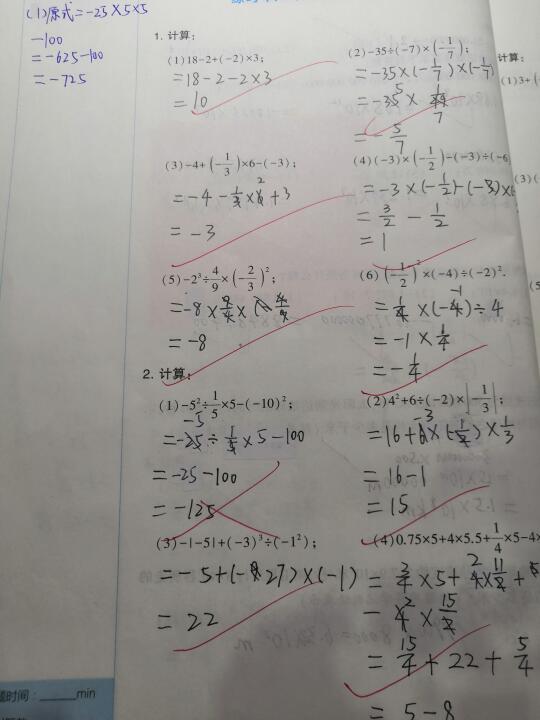 (1)原式=-25×5×5
-100
=-625-100
=-725
1. 计算:
(1)18-2+(-2)×3;
=18-2-2×3
=10
(2)-35÷(-7)×(-1/7);
=-35×(-1/7)×(-1/7)
=-5/7
(3)-4+(-1/3)×6-(-3);
=-4-1/3×6+3
=-3
(4)(-3)×(-1/2)-(-3)÷(-6
=3/2-1/2
=1
(5)-2³÷4/9×(-2/3)²;
=-8×9/4×4/9
=-8
(6)(-1/2)²×(-4)÷(-2)².
=1/4×(-4)÷4
=-1×1/4
=-1/4
2. 计算:
(1)-5²÷1/5×5-(-10)²;
=-25÷1/5×5-100
=-25-100
=-125
(2)4²+6÷(-2)×|-1/3|;
=16+6×(-1/2)×1/3
=16-1
=15
(3)-|-5|+(-3)³÷(-1²);
=-5+(-27)×(-1)
=22
(4)0.75×5+4×5.5+1/4×5-4×
=3/4×5+4×11/2+
-4×15/2
=15/4+22+5/4
=5-8
计算:
题时间:______min